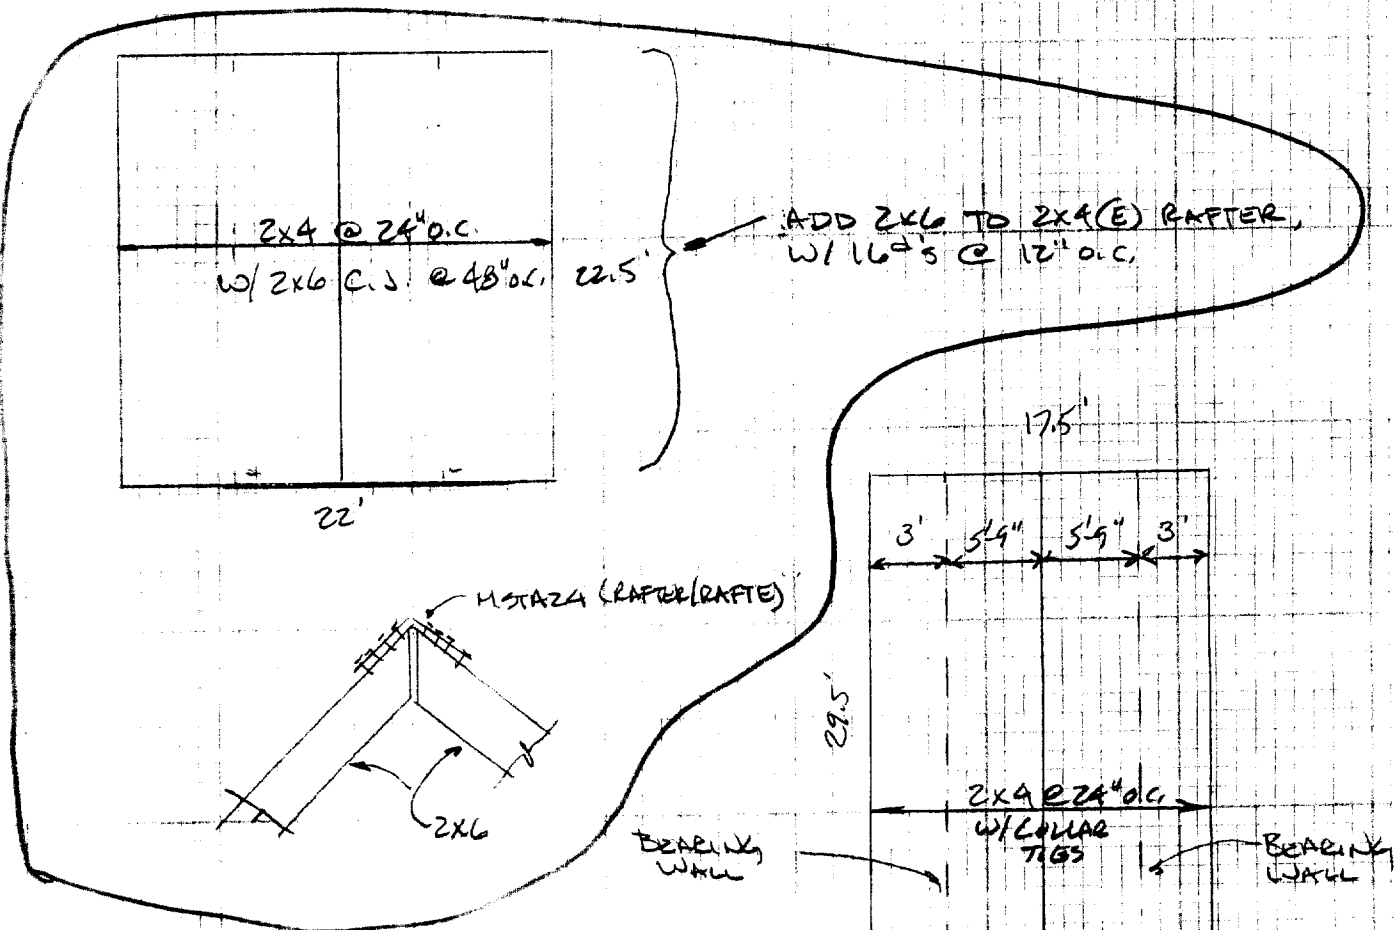 2x4 @ 24" O.C.
W/ 2x6 C.J. @ 48" O.C.
22.5'
ADD 2x6 TO 2x4(E) RAFTER,
W/ 16d's @ 12" O.C.
22'
MSTA24 (RAFTER/RAFTE)
2x6
17.5'
3' 5'-9" 5'-9" 3'
29.5'
2x4 @ 24" O.C.
W/ COLLAR
TIES
BEARING
WALL
BEARING
WALL